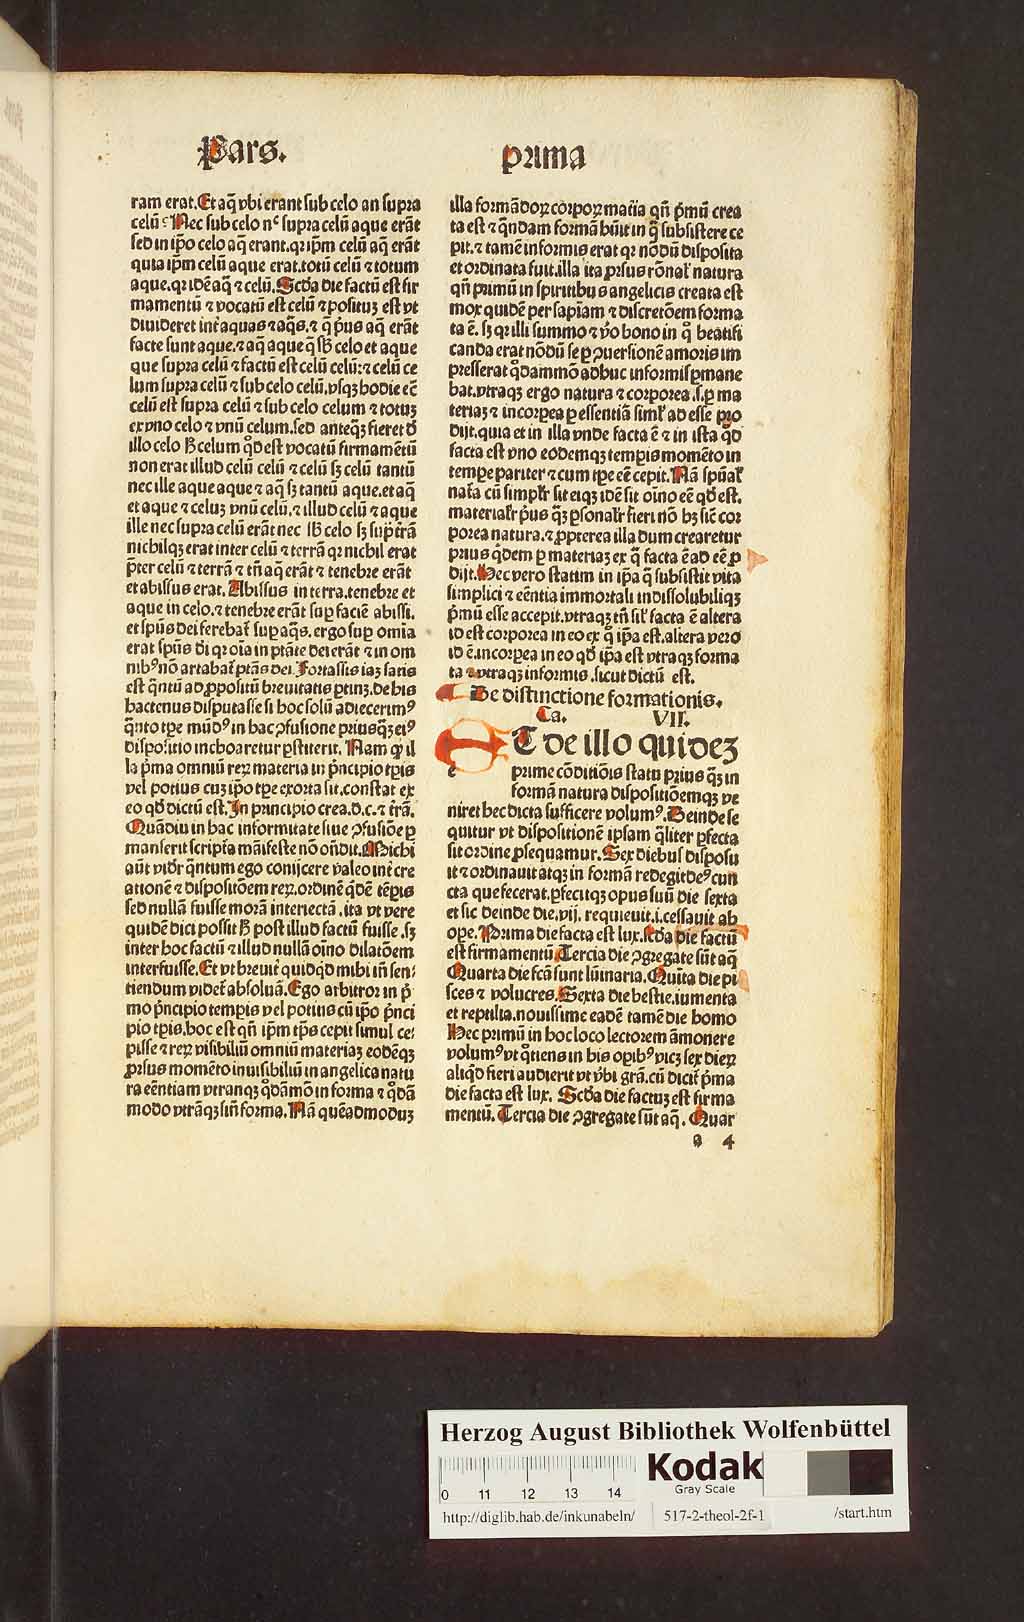 Pars.
prima
ram erat. Et aq̄ vbi erant sub celo an supra
celū? Nec sub celo nec supra celū aque erāt
sed in ip̄o celo aq̄ erant. qꝛ ip̄m celū aq̄ erāt
quia ip̄m celū aque erat. totū celū ⁊ totum
aque. qꝛ idē aq̄ ⁊ celū. Scd̄a die factū est fir
mamentū ⁊ vocatū est celū ⁊ posituꝫ est vt
diuideret int̄ aquas ⁊ aq̄s. ⁊ q̄ p̄us aq̄ erāt
facte sunt aque. ⁊ aq̄ aque q̄ sb̄ celo et aque
que supra celū ⁊ factū est celū celū: ⁊ celū ce
lum supra celū ⁊ sub celo celū. vsqꝫ hodie eē
celū est supra celū ⁊ sub celo celum ⁊ totuꝫ
ex vno celo ⁊ vnū celum. sed anteq̄ꝫ fieret d̄
illo celo ꝧ celum qd̄ est vocatū firmamētū
non erat illud celū celū ⁊ celū sꝫ celū tantū
nec ille aque aque ⁊ aq̄ sꝫ tantū aque. et aq̄
et aque ⁊ celuꝫ vnū celū. ⁊ illud celū ⁊ aque
ille nec supra celū erāt nec sb̄ celo sꝫ sup̄ t̄rā
nichilqꝫ erat inter celū ⁊ terrā qꝛ nichil erat
p̄ter celū ⁊ terrā ⁊ tn̄ aq̄ erāt ⁊ tenebre erāt
et abissus erat. Abissus in terra. tenebre et
aque in celo. ⁊ tenebre erāt sup̄ faciē abissi.
et spūs dei ferebat̄ sup̄ aq̄s. ergo sup̄ omīa
erat spūs d̄i qꝛ oīa in ptāte dei erāt ⁊ in om
nibꝰ nō artabat̄ ptās dei. Fortassis iaꝫ satis
est q̄ntū ad ꝓpositū breuitatis ꝑtinꝫ. de his
hactenus disputasse si hoc solū adiecerimꝰ
q̄nto tp̄e mūdꝰ in hac ꝯfusione priusq̄ꝫ eiꝰ
dispositio inchoaretur ꝑstiterit. Nam ꝙ il
la p̄ma omniū reꝝ materia in p̄ncipio tp̄is
vel potius cuꝫ ip̄o tp̄e exorta sit. constat ex
eo qd̄ dictū est. In principio crea. d. c. ⁊ t̄rā.
Quādiu in hac informitate siue ꝯfusiōe ꝑ
manserit scriptā māifeste nō on̄dit. Michi
aūt vid̄r q̄ntum ego conijcere valeo int̄ cre
ationē ⁊ dispositōem reꝝ. ordinē qd̄ē tēpis
sed nullā fuisse morā interiectā. ita vt vere
quidē dici possit ꝧ post illud factū fuisse. sꝫ
inter hoc factū ⁊ illud nullā oīno dilatōem
interfuisse. Et vt breuit̄ quid qd̄ mihi in̄ sen⸗
tiendum videt̄ absoluā. Ego arbitror in p̄
mo p̄ncipio tempis vel potius cū ip̄o p̄nci
pio tp̄is. hoc est qn̄ ip̄m tp̄s cepit simul ce⸗
pisse ⁊ reꝝ visibiliū omniū materiaꝫ eodēqꝫ
ꝓrsus momēto inuisibiliū in angelica natu
ra eēntiam vtranqꝫ qd̄āmō in forma ⁊ qd̄ā
modo vtrāqꝫ sin̄ forma. Nā quēadmoduꝫ
illa formādoꝝ corpoꝝ mat̄ia qn̄ p̄mū crea
ta est ⁊ q̄ndam formā hūit in q̄ subsistere ce
pit. ⁊ tamē informis erat qꝛ nōdū disposita
et ordinata fuit. illa ita ꝓrsus rōnal̄ natura
qn̄ primū in spiritibus angelicis creata est
mox quidē per sapiam ⁊ discretōem forma
ta ē. sꝫ qꝛ illi summo ⁊ v̄o bono in q̄ beatifi
canda erat nōdū se ꝑ ꝯuersionē amoris im
presserat qd̄ammō adhuc informis ꝑmane
bat. vtraqꝫ ergo natura ⁊ corporea. s. ꝑ ma
teriaꝫ ⁊ incorpea ꝑ essentiā simĺ ad esse pro
dijt. quia et in illa vnde facta ē ⁊ in ista qd̄
facta est vno eodemqꝫ tempis momēto in
tempe pariter ⁊ cum tp̄e eē cepit. Nā spūal̄
nat̄a cū simpl̄r sit eiqꝫ idē sit oīno eē qd̄ est.
material̄r p̄us q̄ꝫ ꝑsonal̄r fieri nō hꝫ sic̄ cor
porea natura. ⁊ ꝓpterea illa dum crearetur
prius q̄dem ꝑ materiaꝫ ex q̄ facta ē ad eē ꝓ
dijt. Hec vero statim in ip̄a q̄ subsistit vita
simplici ⁊ eēntia immortali indissolubiliqꝫ
p̄mū esse accepit. vtraqꝫ tn̄ sil̄ facta ē altera
id est corporea in eo ex q̄ ip̄a est. altera vero
id ē. incorpea in eo qd̄ ip̄a est vtraqꝫ forma
ta ⁊ vtraqꝫ informis. sicut dictū est.
De distinctione formationis.
Ca. VII.
ET de illo quidez
e
prime cōditiōis statu prius q̄ꝫ in
formā natura dispositiōemqꝫ ve
niret hec dicta sufficere volumꝰ. Deinde se
quitur vt dispositionē ipsam q̄liter ꝑfecta
sit ordine ꝓsequamur. Sex diebus disposu
it ⁊ ordinauit atqꝫ in formā redegit deꝰ cun
cta que fecerat. ꝑfecitqꝫ opus suū die sexta
et sic deinde die. vij. requieuit. i. cessauit ab
ope. Prima die facta est lux. Scd̄a die factū
est firmamentū Tercia die ꝯgregate sūt aq̄
Quarta die fcā sunt lūinaria. Quīta die pi
sces ⁊ volucres. Sexta die bestie. iumenta
et reptilia. nouissime eadē tamē die homo
Hec primū in hoc loco lectorem āmonere
volumꝰ vt q̄tiens in his opibꝰ vicꝫ sex dieꝝ
aliqd̄ fieri audierit vt v̄bi grā. cū dicit̄ p̄ma
die facta est lux. Scd̄a die factuꝫ est firma
mentū. Tercia die ꝯgregate sūt aq̄. Quar
a 4
Herzog August Bibliothek Wolfenbüttel
0 11 12 13 14
Kodak
Gray Scale
http://diglib.hab.de/inkunabeln/ 517-2-theol-2f-1 /start.htm